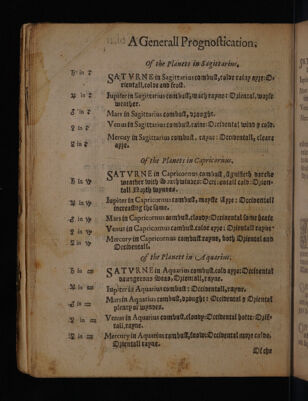 A Generall Prognostication.
Of the Planets in Sagittarius.
SATVRNE in Sagittarius combust, colde rainy ayre: O-
rientall, colde and frost.
Iupiter in Sagittarius combust, much rayne: Orientall, warme
weather.
Mars in Sagittarius combust, drought.
Venus in Sagittarius combust, raine: Occidental wind &
Mercury in Sagittarius combust, rayne: Occidentall, cleare
ayre.
Of the Planets in Capricornus.
SATVRNE in Capricornus combust, signifieth
weather with Occidentall cold: Orien-
tall North wyndes.
Iupiter in Capricornus combust, ayre: Occidentall
increasing the same.
Mars in Capricornus combust, cloudy: Occidentall some heate
Venus in Capricornus combust, colde ayre: Orientall rayne
Mercury in Capricornus combust rayne, both Oriental and
Occidentall.
Of the Planets in Aquarius.
SATVRNE in Aquarius combust, cold ayre: Occidental
Orientall, rayne.
Iupiter in Aquarius combust: Occidentall, rayne.
Mars in Aquarius combust, drought: Occidental & Oriental
plenty of wyndes.
Venus in Aquarius combust, cloudy: Occidental hotte: Orien-
tall, rayne.
Mercury in Aquarius combust, Occidental more colde,
Orientall rayne.
Of the